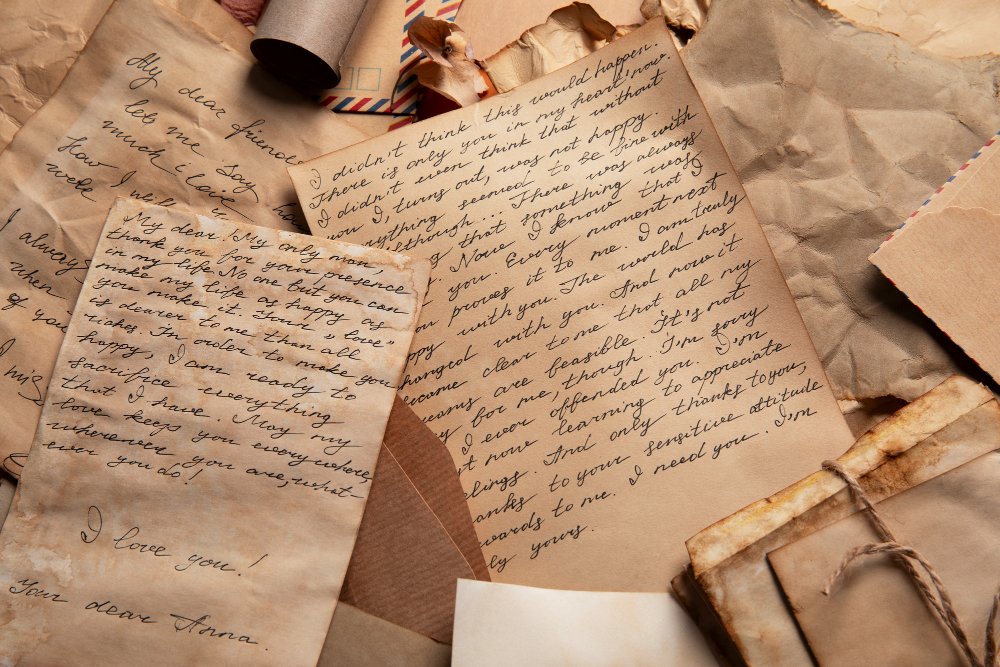 My dear friend
let me say
much i love
How I
well
I always
when
of you
his
My dear! My only man,
thank you for your presence
in my life. No one but you can
make my life as happy as
you make it. Your "love"
is dearer to me than all
riches. In order to make you
happy, I am ready to
sacrifice everything
that I have. May my
love keep you everywhere,
wherever you are, what-
ever you do!
I love you!
Your dear Anna.
I didn't think this would happen.
There is only you in my heart now.
I didn't even think that without
you I, turns out, was not happy.
ything seemed to be fine with
lthough... There was always
g that something was
Now I know that I
you. Every moment next
ou proves it to me. I am truly
ppy with you. The world has
changed with you. And now it
ecame clear to me that all my
reams are feasible. It's not
y for me, though. I'm sorry
I ever offended you. I'm
t now learning to appreciate
elings. And only thanks to you,
anks to your sensitive attitude
wards to me. I need you. I'm
ly yours.